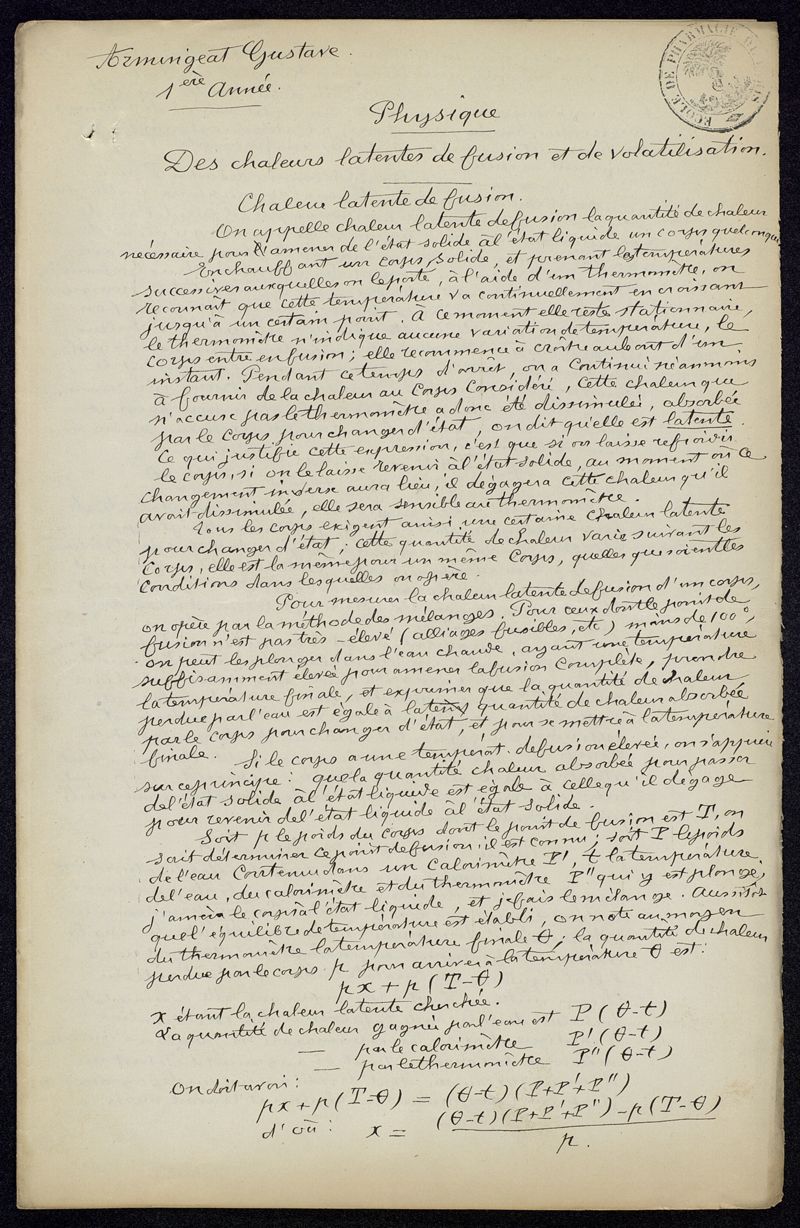 Armingeat Gustave.
1ère Année.
ECOLE DE PHARMACIE
Physique
Des chaleurs latentes de fusion et de volatilisation.
Chaleur latente de fusion.
On appelle chaleur latente de fusion la quantité de chaleur
nécessaire pour amener de l'état solide à l'état liquide un corps quelconque.
En chauffant un corps solide, et prenant les températures
successives auxquelles on le porte, à l'aide d'un thermomètre, on
reconnaît que cette température va continuellement en croissant
jusqu'à un certain point. A ce moment elle reste stationnaire,
le thermomètre n'indique aucune variation de température, le
corps entre en fusion; elle recommence à croître au bout d'un
instant. Pendant ce temps d'arrêt, on a continué néanmoins
à fournir de la chaleur au corps considéré, cette chaleur que
n'accuse pas le thermomètre a donc été dissimulée, absorbée
par le corps pour changer d'état, on dit qu'elle est latente.
Ce qui justifie cette expression, c'est que si on laisse refroidir
le corps, si on le laisse revenir à l'état solide, au moment où ce
changement inverse aura lieu, il dégagera cette chaleur qu'il
avait dissimulée, elle sera sensible au thermomètre.
Tous les corps exigent ainsi une certaine chaleur latente
pour changer d'état; cette quantité de chaleur varie suivant les
corps, elle est la même pour un même corps, quelles que soient les
conditions dans lesquelles on opère.
Pour mesurer la chaleur latente de fusion d'un corps,
on opère par la méthode des mélanges. Pour ceux dont le point de
fusion n'est pas très-élevé (alliages fusibles, etc) moins de 100°,
on peut les plonger dans l'eau chaude, ayant une température
suffisamment élevée pour amener la fusion complète, prendre
la température finale, et exprimer que la quantité de chaleur
perdue par l'eau est égale à la quantité de chaleur absorbée
par le corps pour changer d'état, et pour se mettre à la température
finale. Si le corps a une températ. de fusion élevée, on s'appuie
sur ce principe: que la quantité chaleur absorbée pour passer
de l'état solide à l'état liquide est égale à celle qu'il dégage
pour revenir de l'état liquide à l'état solide.
Soit p le poids du corps dont le point de fusion est T, on
sait déterminer ce point de fusion, il est connu; soit P le poids
de l'eau contenu dans un calorimètre P', t la température
de l'eau, du calorimètre et du thermomètre P" qui y est plongé,
j'amène le corps à l'état liquide, et je fais le mélange. Aussitôt
que l'équilibre de température est établi, on note au moyen
du thermomètre la température finale θ; la quantité de chaleur
perdue par le corps p pour arriver à la température θ est:
px + p (T-θ)
x étant la chaleur latente cherchée.
La quantité de chaleur gagnée par l'eau est P (θ-t)
— par le calorimètre P' (θ-t)
— par le thermomètre P" (θ-t)
On doit avoir:
px + p (T-θ) = (θ-t) (P+P'+P")
d'où: x = (θ-t) (P+P'+P") - p (T-θ)
p.